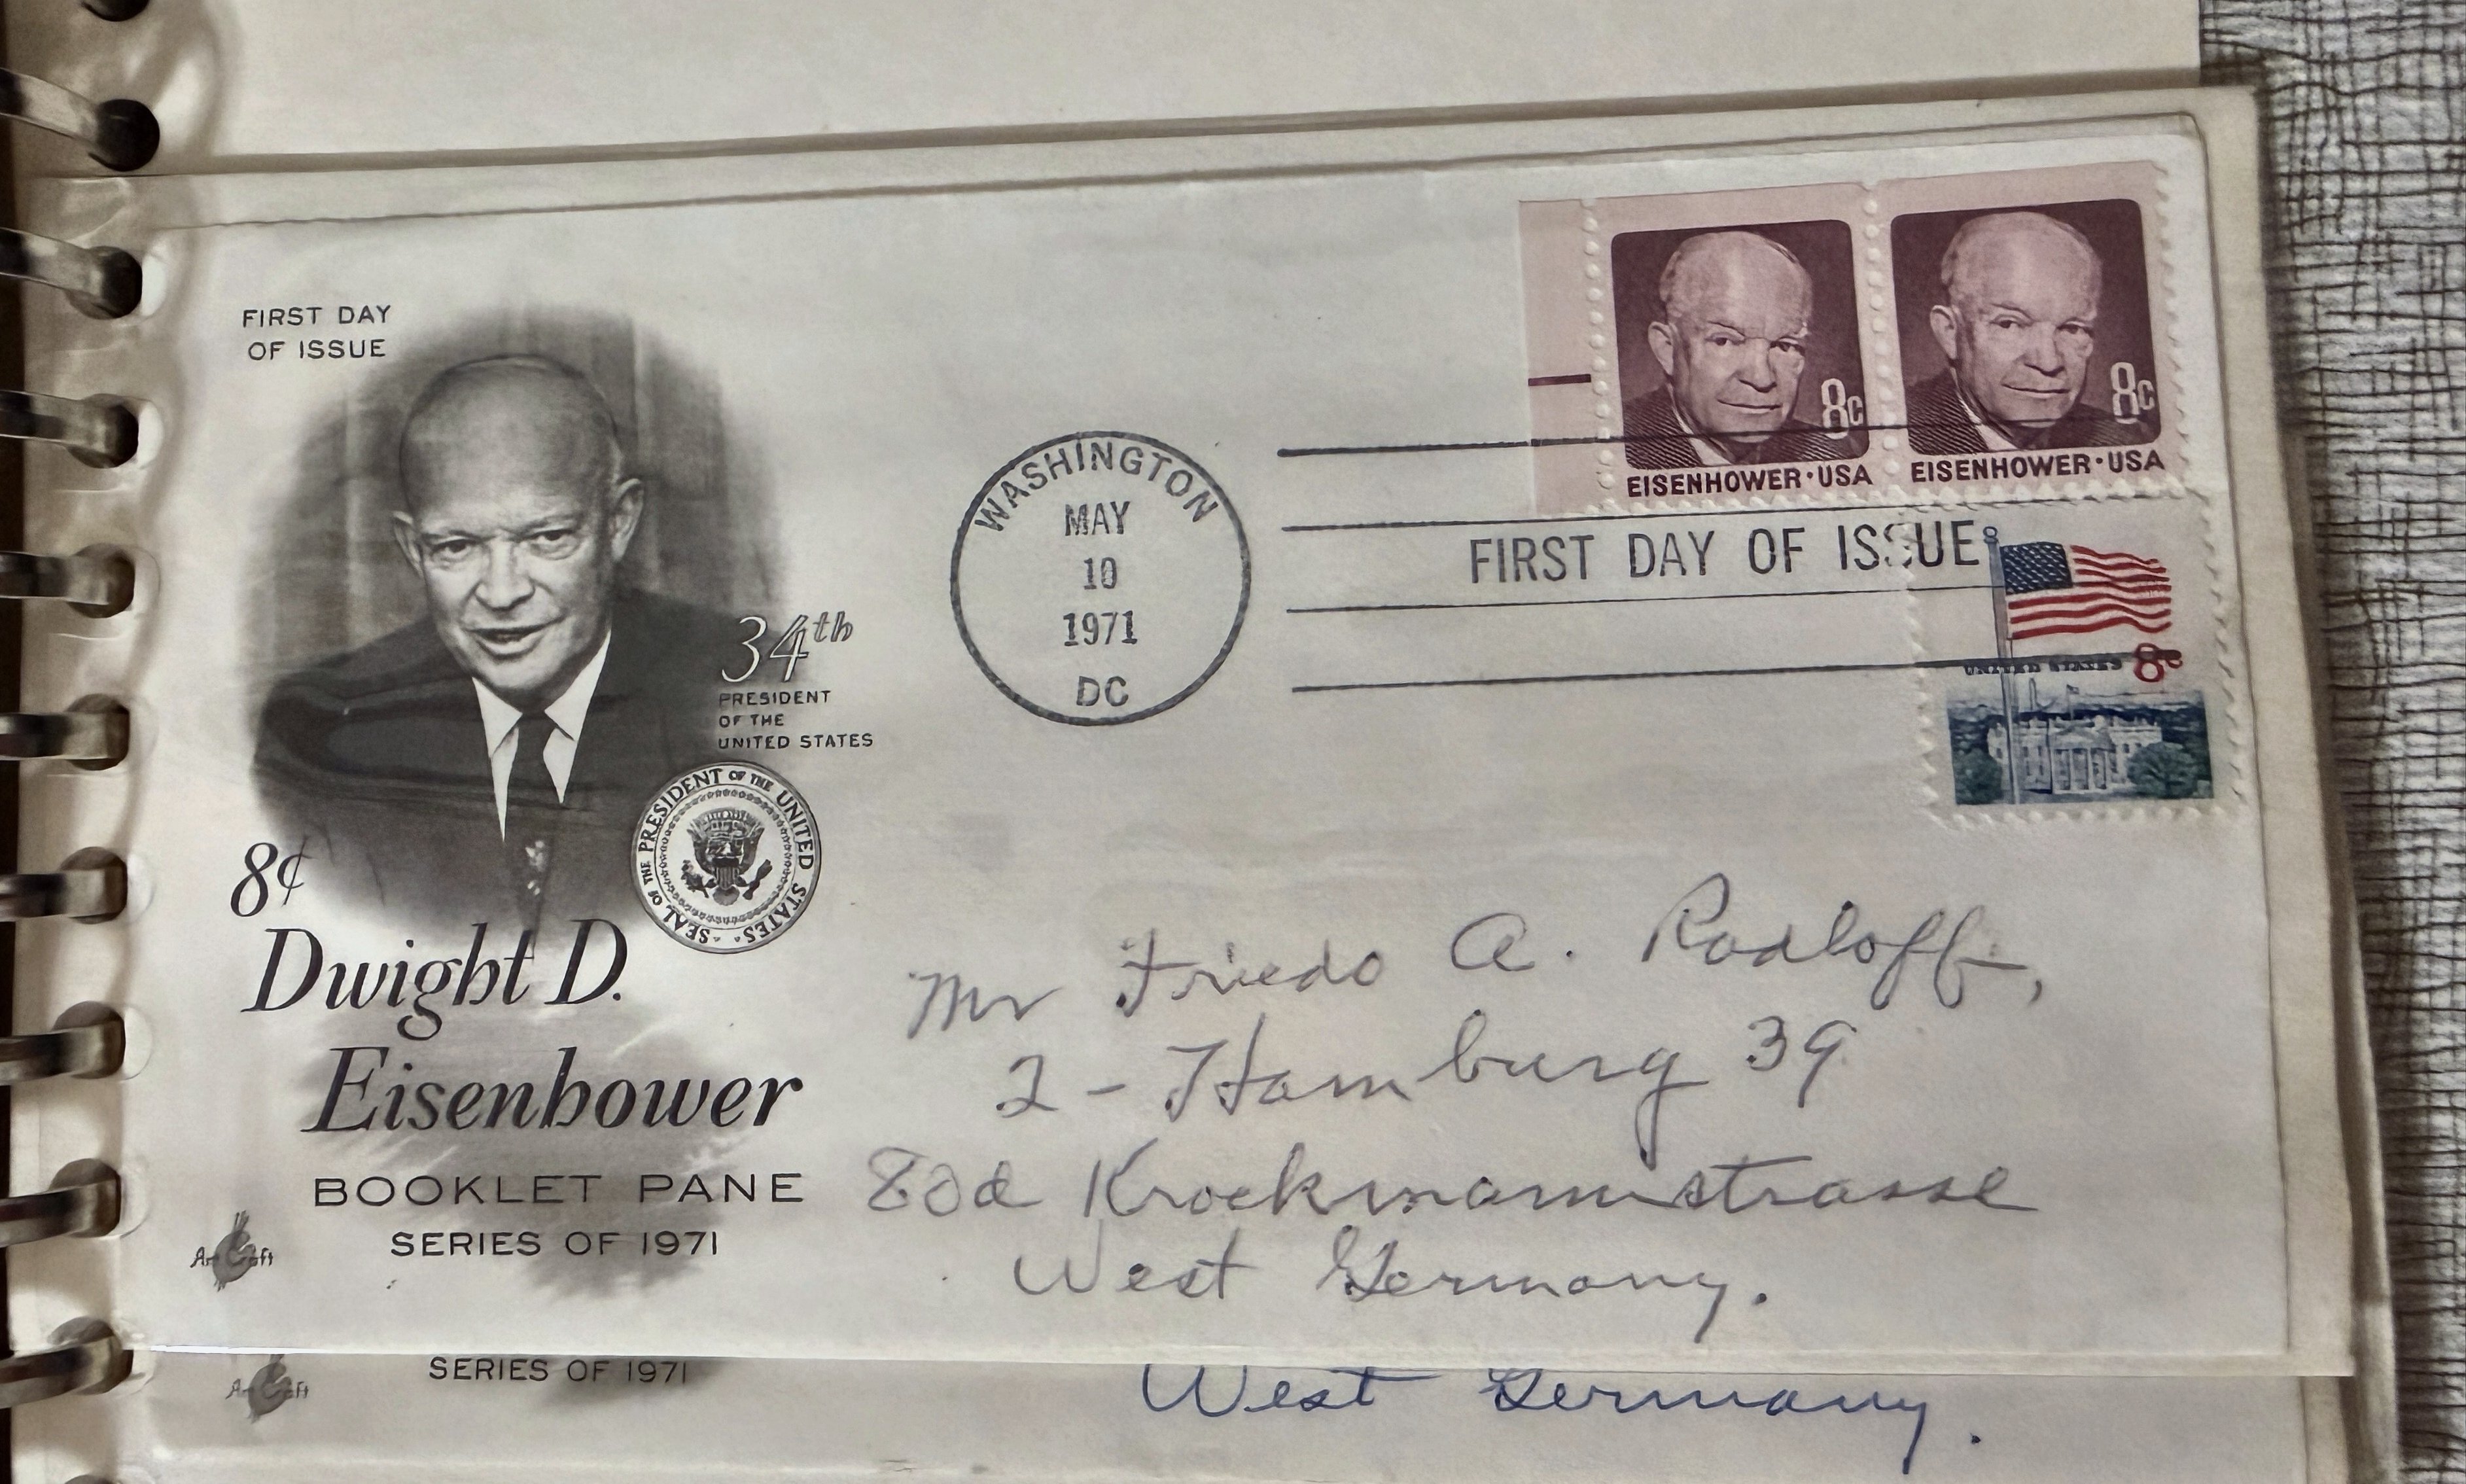 FIRST DAY
OF ISSUE
34th
PRESIDENT
OF THE
UNITED STATES
SEAL OF THE PRESIDENT OF THE UNITED STATES
8¢
Dwight D.
Eisenhower
BOOKLET PANE
SERIES OF 1971
ArtCraft
WASHINGTON
MAY
10
1971
DC
8c
EISENHOWER·USA
8c
EISENHOWER·USA
FIRST DAY OF ISSUE
UNITED STATES 8c
Mr Friedo A. Radloff,
2 - Hamburg 39
80d Krochmannstrasse
West Germany.
SERIES OF 1971
ArtCraft
West Germany.